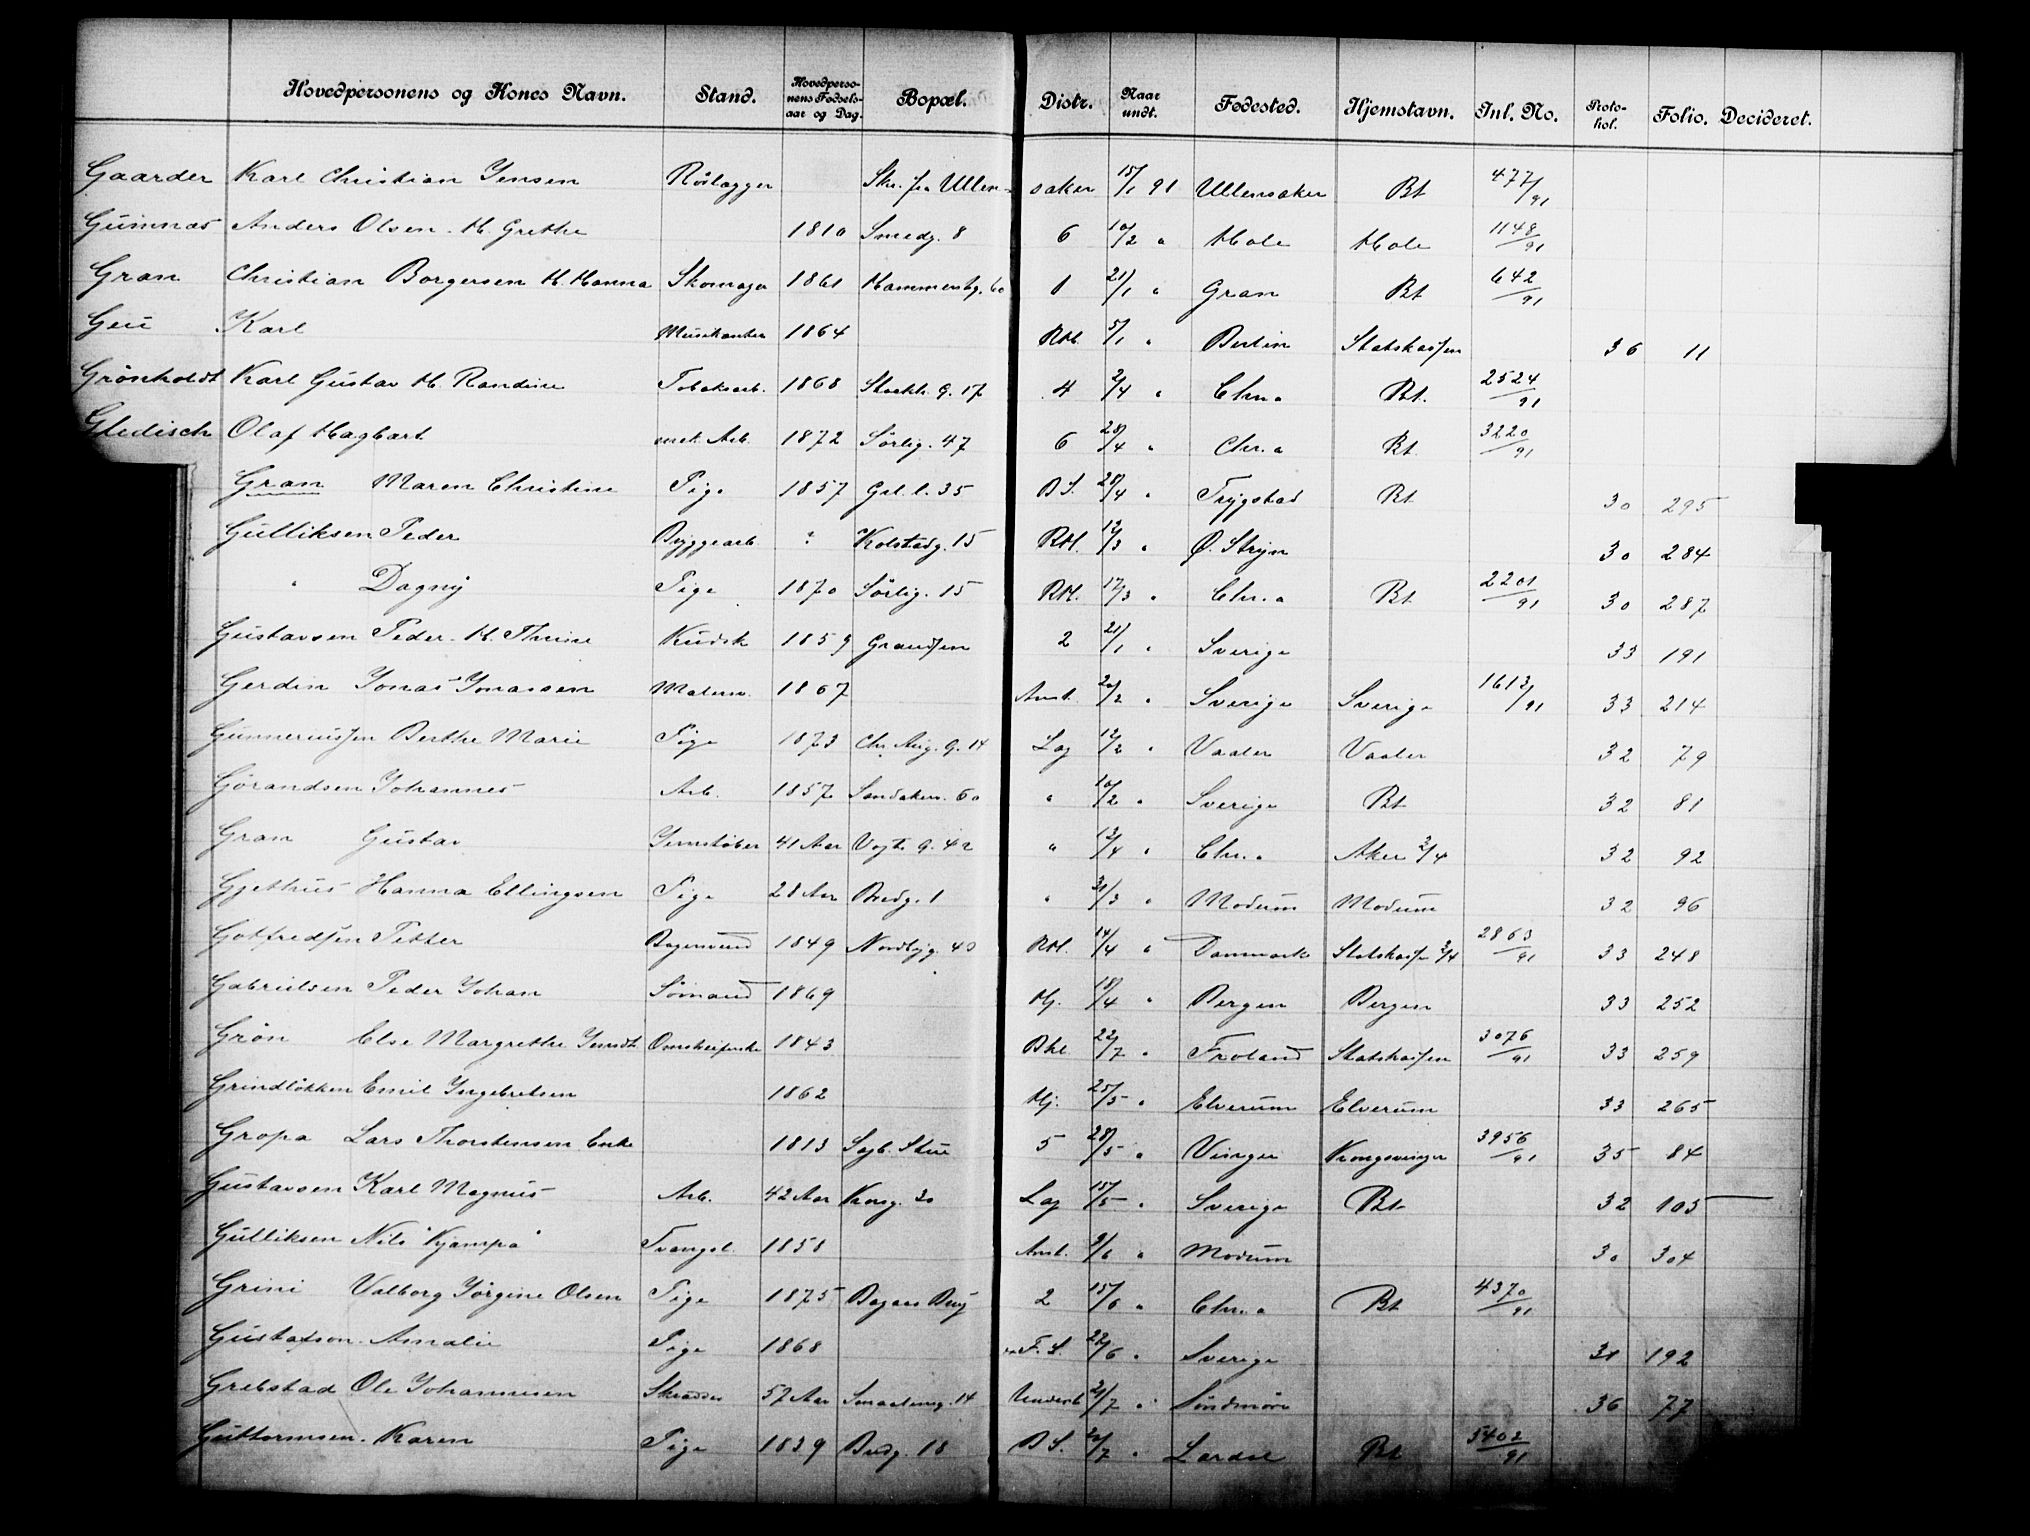 Hovedpersonens og Kones Navn. Stand. Hovedpersonens Fødselsaar og Dag. Bopæl. Distr. Naar undt. Fødested. Hjemstavn. Jnl. No. Protokol. Folio. Decideret.
Gaarder Karl Christian Jensen Rörlægger Skr. fra Ullensaker 15/1 91 Ullensaker Bt 477/91
Guinnas Anders Olsen. H. Grethe 1810 Smedg. 8 6 10/2 " Hole Hole 1148/91
Gran Christian Borgersen H. Hanna Skomager 1861 Hammersbg. 60 1 21/1 " Gran Bt 642/91
Geu Karl Musikanter 1864 RM. 5/1 " Berlin Statskassen 36 11
Grönholdt Karl Gustav H. Randine Tobaksarb. 1868 Stockh. G. 17 4 2/4 " Chr.a Bt. 2524/91
Gledisch Olaf Hagbart Arb. 1872 Sörlig. 47 6 28/4 " Chr.a Bt. 3220/91
Gran Maren Christine Pige 1857 Grl. l. 35 B S. 28/4 " Trygstad Bt 30 295
Gulliksen Peder Byggearb. ? Kolstadg. 15 RM. 12/3 " Ø. Stryn 30 284
" Dagny Pige 1870 Sörlig. 15 RM. 17/3 " Chr.a Bt 2201/91 30 287
Gustavsen Peder. H. Thrine Kudsk 1859 Grandsen 2 21/1 " Sverige 33 191
Gerdin Jonas Jonassen 1867 Anst. 20/2 " Sverige Sverige 1613/91 33 214
Gunneriussen Berthe Marie Pige 1873 Chr. Aug. G. 14 Lag 12/2 " Vaaler Vaaler 32 79
Görandsen Johannes Arb. 1857 Sandakerv. 60 " 10/2 " Sverige Bt 32 81
Gran Gustav Jernstöber 41 Aar Vogts G. 42 " 13/4 " Chr.a Aker 3/4 32 92
Gjethus Hanna Ellingsen Pige 28 Aar Bredg. 1 " 31/3 " Modum Modum 32 96
Gotfredsen Petter Bagersvend 1849 Nordbyg. 43 RM. 14/4 " Danmark Statskassen 2/4 2863/91 33 248
Gabrielsen Peder Johan Sömand 1869 Hj. 18/4 " Bergen Bergen 33 252
Grön Else Margrethe Jensdt. Omstreiferske 1843 22/7 " Froland Statskassen 3076/91 33 259
Grindlökken Emil Ingebretsen 1862 Hj. 25/5 " Elverum Elverum 33 265
Gropa Lars Thorstensen Enke 1813 Sagb. Stue 5 28/5 " Vinger Kongsvinger 3956/91 35 84
Gustavsen Karl Magnus Arb. 42 Aar Kong. 20 Lag 15/5 " Sverige Bt 32 105
Gulliksen Nils "Kjæmpa" Tvangsl. 1858 Anst. 9/6 " Modum 30 304
Grini Valborg Jörgine Olsen Pige 1875 Bagaas Brug 2 15/6 " Chr.a Bt 4370/91
Gustafson. Amalie Pige 1868 F. S. 22/6 " Sverige 31 192
Grebstad Ole Johannesen Skrædder 57 Aar Smaalensg. 14 Undersb 21/7 " Söndmöre 36 77
Guttormsen. Karen Pige 1839 Bredg. 18 B S. 20/7 " Lardal Bt 5402/91